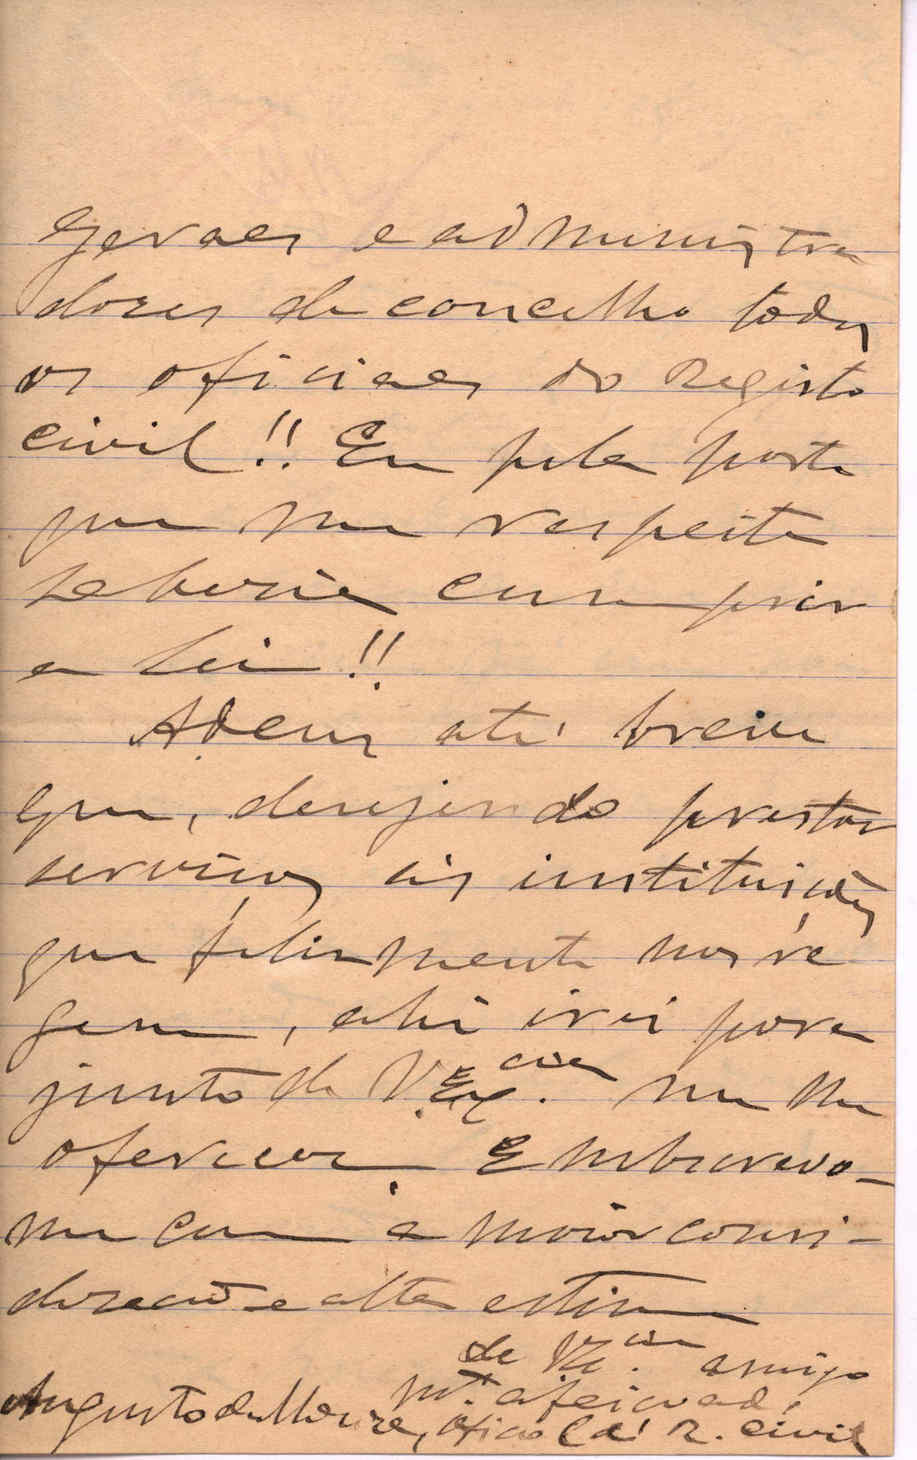 geraes e administra
dores de concelho todos
os oficiaes do Registo
civil!! Eu pela parte
que me respeita
saberia cumprir
a lei!!
Adeus até breve
que, desejando prestar
serviços ás instituições
que felismente nos re
gem, ahi irei para
junto de V. Ex.cia me
oferecer. E subscrevo-
me com a maior consi-
deração e alta estima
de V. Ex.cia amigo
mt.º afeiçoad.
Augusto da, oficial d R. civil